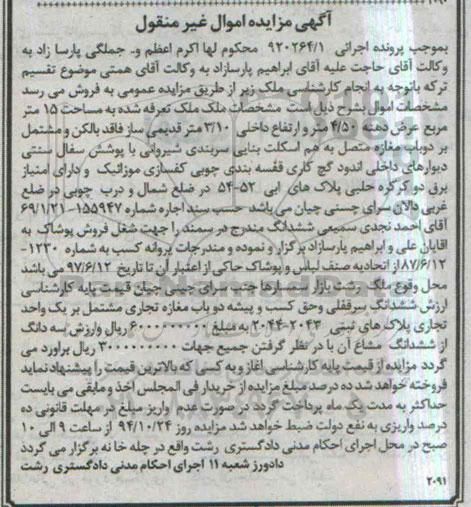 آگهی مزایده اموال غیر منقول
بموجب پرونده اجرائی ۹۲۰۲۶۴/۱ محکوم لها اکرم اعظم و.. جملگی پارسا زاد به
وکالت آقای حاجت علیه آقای ابراهیم پارسازاد به وکالت آقای همتی موضوع تقسیم
ترکه باتوجه به انجام کارشناسی ملک زیر از طریق مزایده عمومی به فروش می رسد
مشخصات اموال بشرح ذیل است مشخصات ملک ملک تعرفه شده به مساحت ۱۵ متر
مربع عرض دهنه ۴/۵۰ متر و ارتفاع داخلی ۳/۱۰ متر قدیمی ساز فاقد بالکن و مشتمل
بر دوباب مغازه متصل به هم اسکلت بنایی سربندی شیروانی با پوشش سفال سنتی
دیوارهای داخلی اندود گچ کاری قفسه بندی چوبی کفسازی موزائیک و دارای امتیاز
برق دو کرکره حلبی پلاک های آبی ۵۲-۵۴ در ضلع شمال و درب چوبی در ضلع
غربی دالان سرای چسنی چیان می باشد حسب سند اجاره شماره ۱۵۵۹۴۷-۶۹/۱/۲۱
آقای احمد نجدی سمیعی ششدانگ مندرج در سمند را جهت شغل فروش پوشاک به
آقایان علی و ابراهیم پارسازاد برگزار و نموده و مندرجات پروانه کسب به شماره ۱۲۳۰-
۸۷/۶/۱۲ از اتحادیه صنف لباس و پوشاک حاکی از اعتبار آن تا تاریخ ۹۷/۶/۱۲ می باشد
محل وقوع ملک رشت بازار سمسارها جنب سرای چسنی چیان قیمت پایه کارشناسی
ارزش ششدانگ سرقفلی وحق کسب و پیشه دو باب مغازه تجاری مشتمل بر یک واحد
تجاری پلاک های ثبتی ۲۰۴۳-۲۰۴۴ به مبلغ ۶۰۰۰۰۰۰۰۰۰ ریال وارزش سه دانگ
از ششدانگ مشاع آن با در نظر گرفتن جمیع جهات ۳۰۰۰۰۰۰۰۰۰ ریال براورد می
گردد مزایده از قیمت پایه کارشناسی آغاز و به کسی که بالاترین قیمت را پیشنهاد نماید
فروخته خواهد شد ده درصد مبلغ مزایده از خریدار فی المجلس اخذ و مابقی می بایست
حداکثر به مدت یک ماه پرداخت گردد در صورت عدم واریز مبلغ در مهلت قانونی ده
درصد واریزی به نفع دولت ضبط خواهد شد مزایده روز ۹۴/۱۰/۲۴ از ساعت ۹ الی ۱۰
صبح در محل اجرای احکام مدنی دادگستری رشت واقع در چله خانه برگزار می گردد
دادورز شعبه ۱۱ اجرای احکام مدنی دادگستری رشت
۲۰۹۱